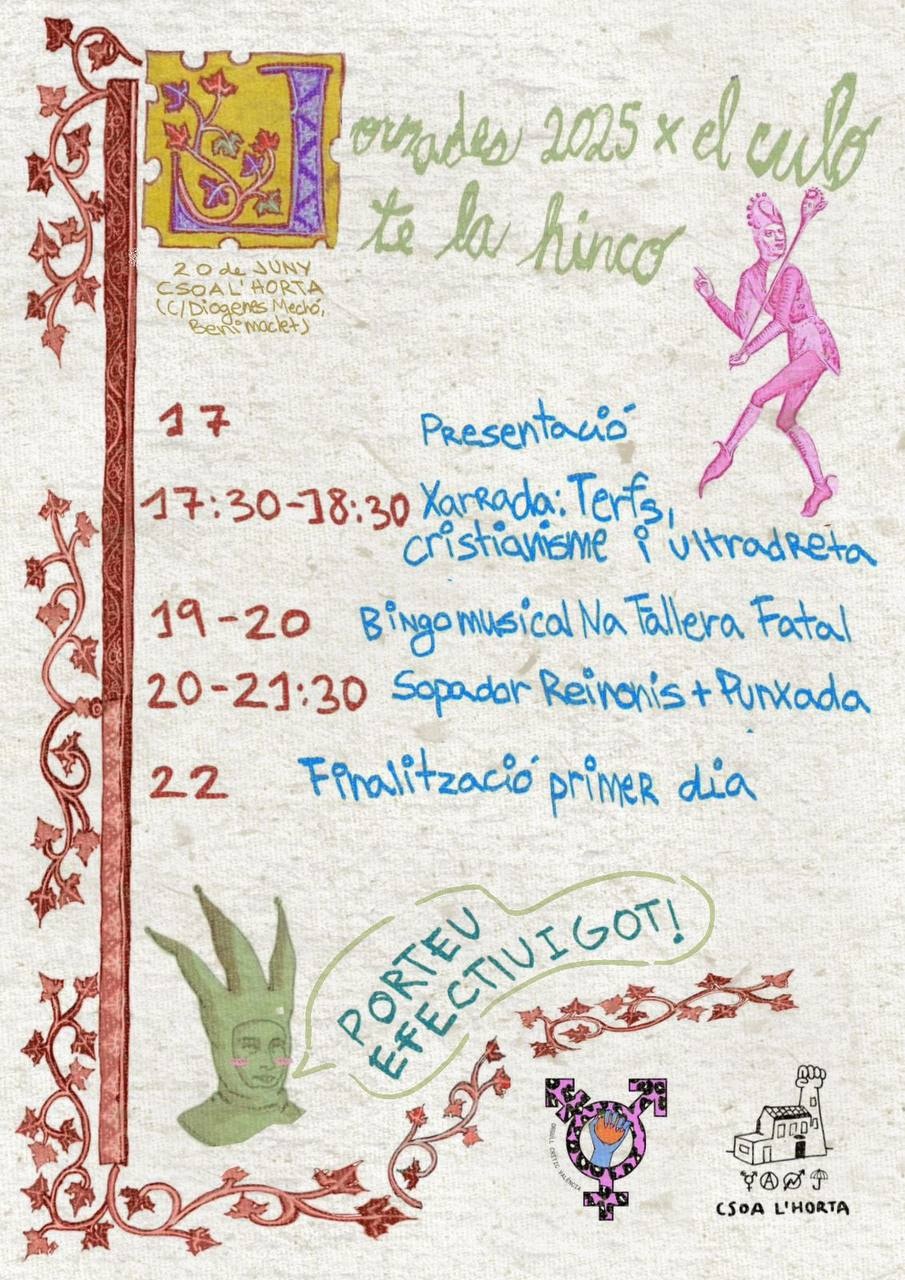 Jornades 2025 x el culo
te la hinco
20 de JUNY
CSOA L'HORTA
(C/Diogenes Mechó,
Benimaclet)
17 Presentació
17:30-18:30 Xarrada: Terfs,
cristianisme i ultradreta
19-20 Bingo musical Na Tallera Fatal
20-21:30 Sopador Reinonis + Punxada
22 Finalització primer dia
PORTEU
EFECTIU I GOT!
ORGULL CRÍTIC VALÈNCIA
CSOA L'HORTA